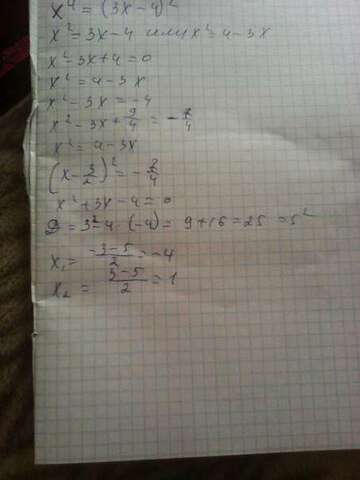 x⁴ = (3x-4)²
x² = 3x-4 или x² = 4-3x
x²-3x+4=0
x² = 4-3x
x²-3x = -4
x²-3x+9/4 = -7/4
x² = 4-3x
(x-3/2)² = -7/4
x²+3x-4=0
D = 3²-4·(-4) = 9+16=25 = 5²
x₁ = (-3-5)/2 = -4
x₂ = (3-5)/2 = 1